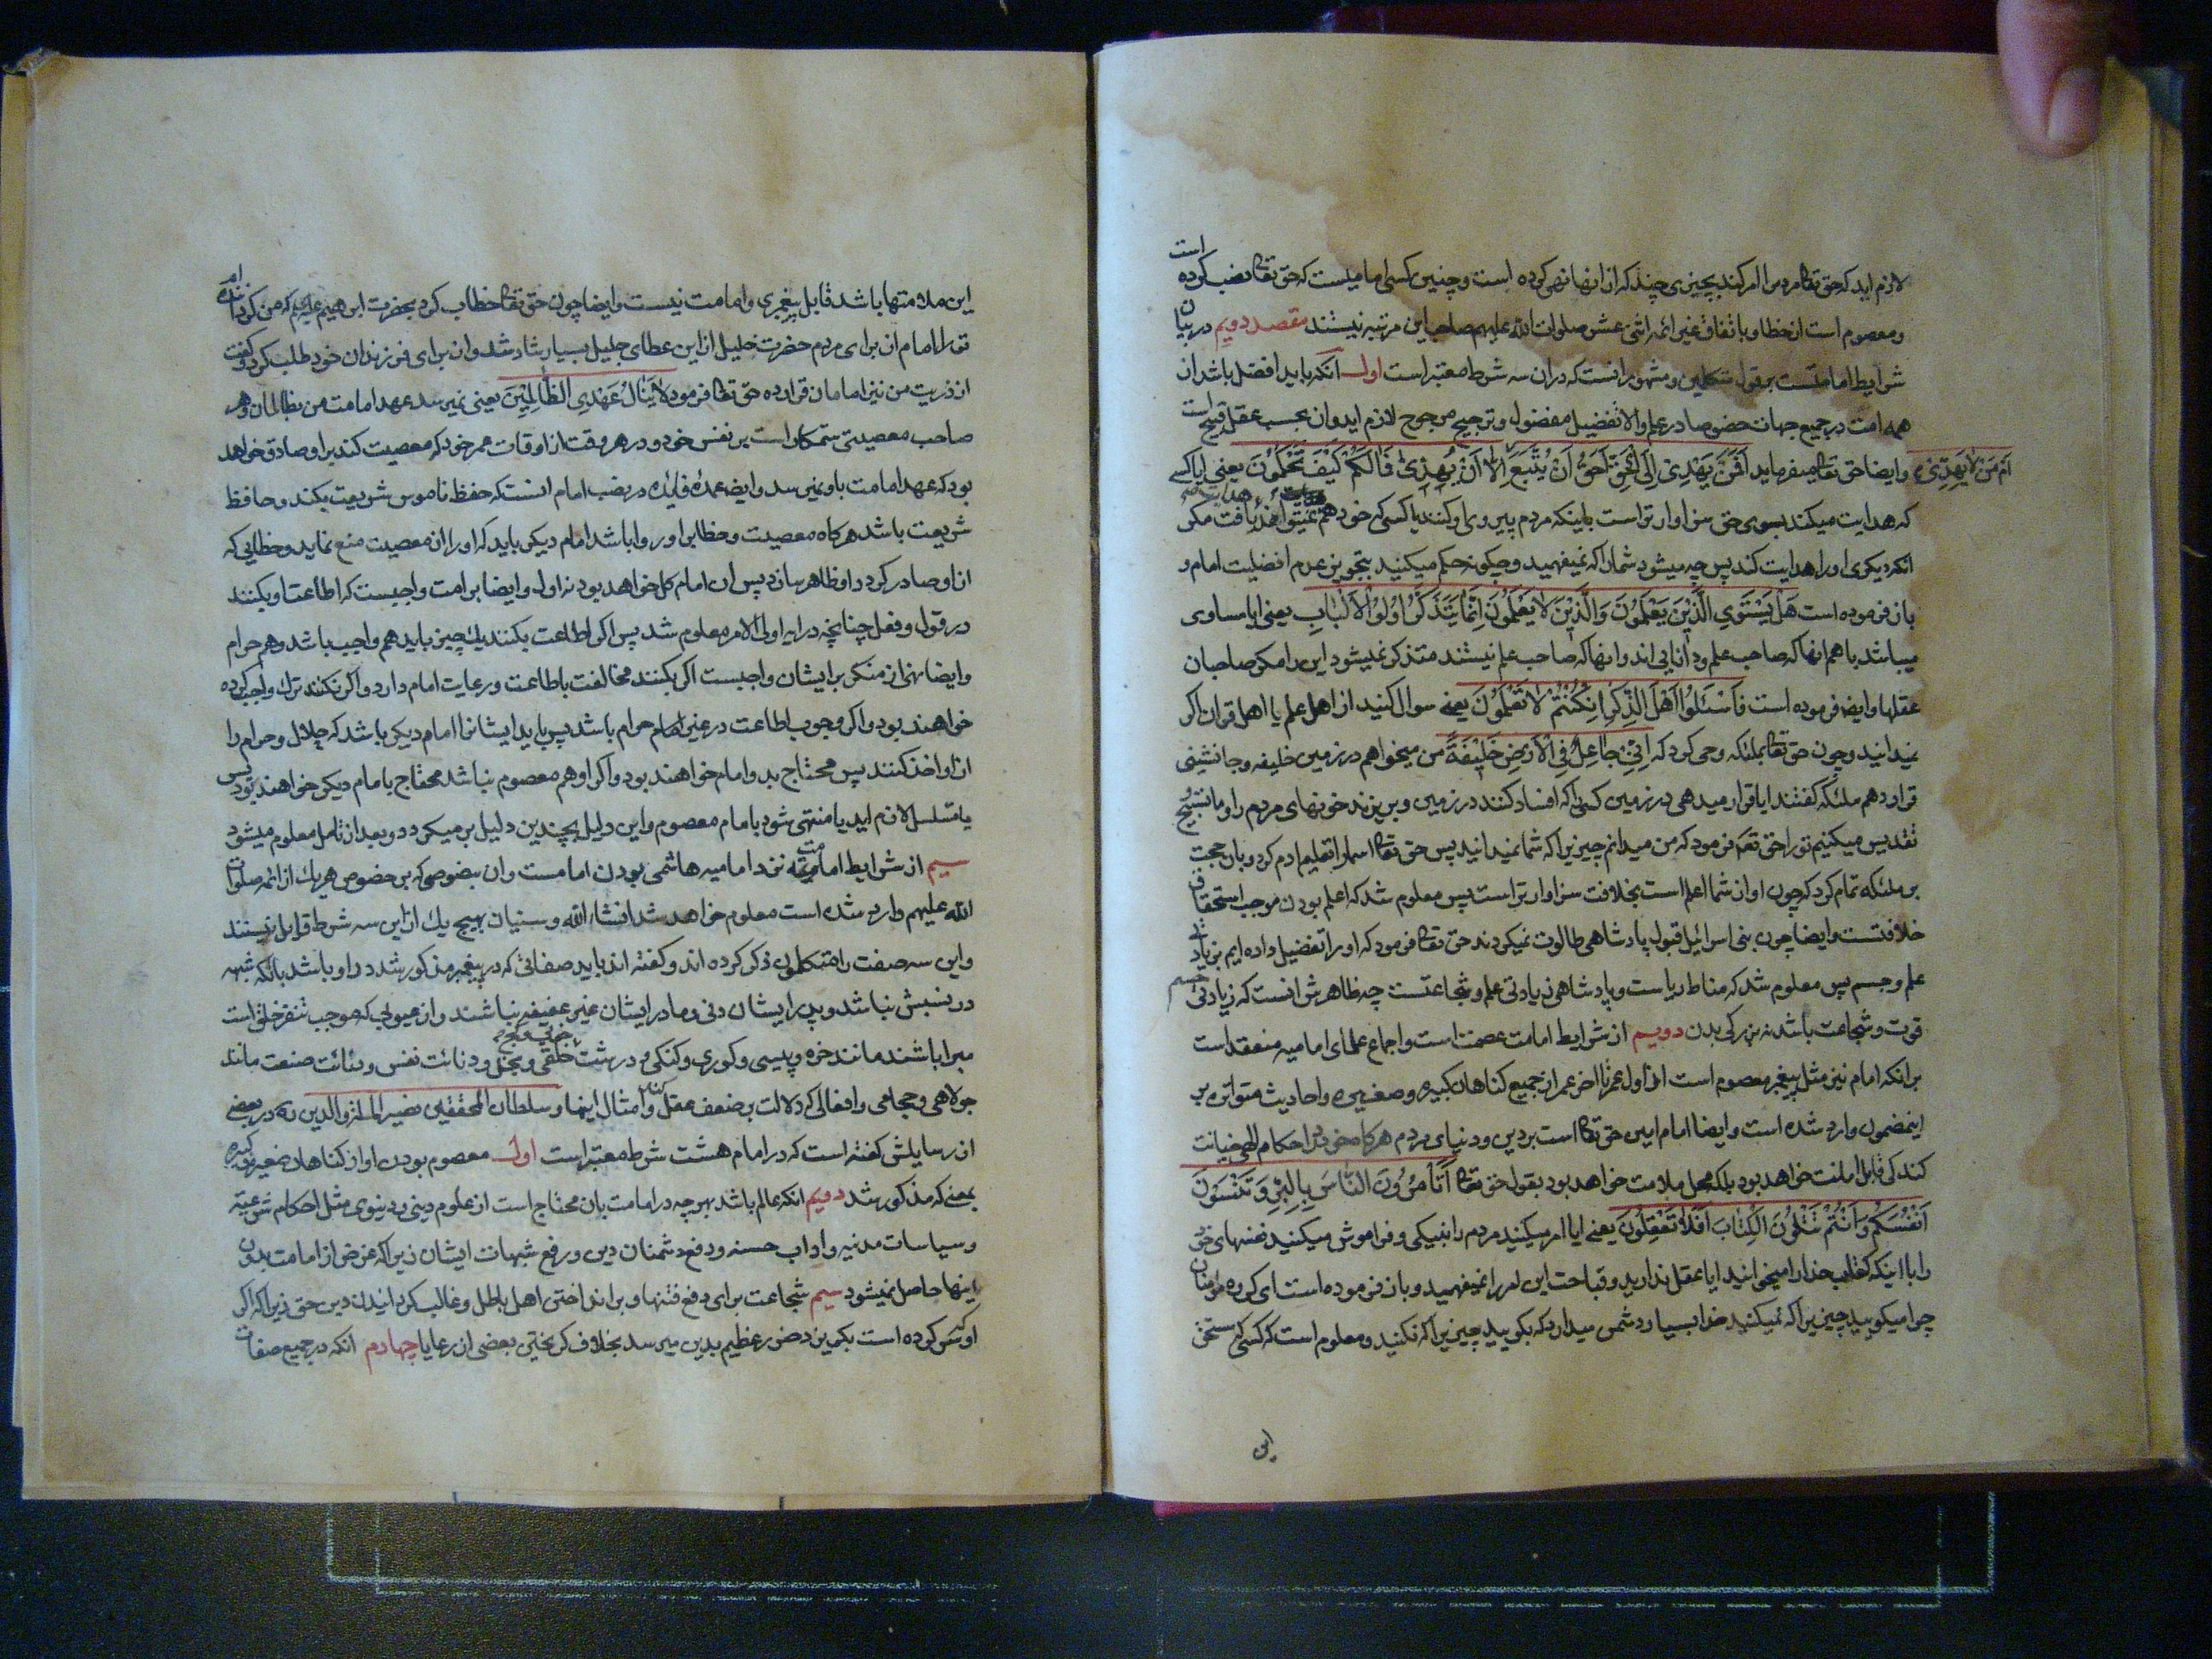 لازم اید که حق تعالی مردم را امر کند بچیزی چند که از انها نهی کرده است و چنین کسی امامیست که حق تعالی نصب کرده است
و معصوم است از خطا و باتفاق غیر ائمه اثنی عشر صلوات الله علیهم صاحب این مرتبه نیستند مقصد دویم در بیان
شرایط امامتست بر قول متکلمین و مشهور انست که در ان سه شرط معتبر است اول انکه باید افضل باشد از
همه امت در جمیع جهات خصوصا در علم و الا تفضیل مفضول و ترجیح مرجوح لازم اید و ان بحسب عقل قبیح است
و ایضا حق تعالی میفرماید اَفَمَنْ یَهْدِی اِلَی الْحَقِّ اَحَقُّ اَنْ یُتَّبَعَ اَمْ مَنْ لا یَهِدِّی اِلّا اَنْ یُهْدیٰ فَمالَکُمْ کَیْفَ تَحْکُمُونَ یعنی ایا کسی
که هدایت میکند بسوی حق سزاوارتر است باینکه مردم پیروی او کنند یا کسی که خود هم هدایت نمیتواند یافت مکر
انکه دیکری او را هدایت کند پس چه میشود شما را که نمیفهمید و چکونه حکم میکنید بتجویز عدم افضلیت امام و
باز فرموده است هَلْ یَسْتَوِی الَّذینَ یَعْلَمُونَ وَالَّذینَ لا یَعْلَمُونَ اِنَّما یَتَذَکَّرُ اُولُوا الْاَلْبابِ یعنی ایا مساوی
میباشند با هم انها که صاحب علم و دانایی اند و انها که صاحب علم نیستند متذکر نمیشود این را مکر صاحبان
عقلها و ایضا فرموده است فَاسْئَلُوا اَهْلَ الذِّکْرِ اِنْ کُنْتُمْ لا تَعْلَمُونَ یعنی سوال کنید از اهل علم یا اهل قران اکر
نمیدانید و چون حق تعالی بملئکه وحی کرد که اِنّی جاعِلٌ فِی الْاَرْضِ خَلیفَةً من میخواهم در زمین خلیفه و جانشینی
قرار دهم ملئکه کفتند ایا قرار میدهی در زمین کسی را که افساد کند در زمین و بریزند خونهای مردم را و ما تسبیح
تقدیس میکنیم تو را حق تعالی فرمود که من میدانم چیزی را که شما نمیدانید پس حق تعالی اسما را تعلیم ادم کرد و بان حجت
بر ملئکه تمام کرد که چون او از شما اعلم است بخلافت سزاوارتر است پس معلوم شد که اعلم بودن موجب استحقاق
خلافتست و ایضا چون بنی اسرائیل قبول پادشاهی طالوت نمیکردند حق تعالی فرمود که او را تفضیل داده ایم بزیادتی
علم و جسم پس معلوم شد که مناط ریاست و پادشاهی زیادتی علم و شجاعتست چه ظاهرش انست که زیادتی جسم
قوت و شجاعت باشد نه بزرکی بدن دویم از شرایط امامت عصمت است و اجماع علمای امامیه منعقد است
بر انکه امام نیز مثل پیغمبر معصوم است از اول عمر تا اخر عمر از جمیع کناهان کبیره و صغیره و احادیث متواتره بر
اینمضمون وارد شده است و ایضا امام امین حق تعالی است بر دین و دنیای مردم هرکاه خود در احکام الهی خیانت
کند کی قابل امانت خواهد بود بلکه محل ملامت خواهد بود بقول حق تعالی اَتَأْمُرُونَ النّاسَ بِالْبِرِّ وَ تَنْسَوْنَ
اَنْفُسَکُمْ وَ اَنْتُمْ تَتْلُونَ الْکِتابَ اَفَلا تَعْقِلُونَ یعنی ایا امر میکنید مردم را بنیکی و فراموش میکنید نفسهای خود
را با اینکه کتاب خدا را میخوانید ایا عقل ندارید و قباحت این امر را نمیفهمید و باز فرموده است ای کروه مومنان
چرا میکویید چیزیرا که نمیکنید خدا بسیار دشمن میدارد که بکویید چیزیرا که نکنید و معلوم است که کسی که مستحق
این
این ملامتها باشد قابل پیغمبری و امامت نیست و ایضا چون حق تعالی خطاب کرد بحضرت ابرهیم علیه که من کرداننده ام
تو را امام از برای مردم حضرت خلیل از این عطای جلیل بسیار شاد شد و از برای فرزندان خود طلب کرد و کفت
از ذریت من نیز امامان قرار ده حق تعالی فرمود لا یَنالُ عَهْدِی الظّالِمینَ یعنی نمیرسد عهد امامت من بظالمان و هر
صاحب معصیتی ستمکار است بر نفس خود و در هر وقت از اوقات عمر خود که معصیت کند بر او صادق خواهد
بود که عهد امامت باو نمیرسد و ایضا عمده فایده در نصب امام انست که حفظ ناموس شریعت بکند و حافظ
شریعت باشد هرکاه معصیت و خطا بر او روا باشد امام دیکر باید که او را از معصیت منع نماید و خطایی که
از او صادر کردد او ظاهر سازد پس ان امام کل خواهد بود نه اول و ایضا بر امت واجبست که اطاعت او بکنند
در قول و فعل چنانچه در ایه اولی الامر معلوم شد پس اکر اطاعت بکنند یک چیز باید هم واجب باشد و هم حرام
و ایضا نهی از منکر بر ایشان واجبست اکر بکنند مخالفت با طاعت و رعایت امام دارد و اکر نکنند ترک واجب کرده
خواهند بود و اکر وجوب اطاعت در غیر حرام باشد پس باید ایشانرا امام دیکر باشد که حلال و حرام را
از او اخذ کنند پس محتاج بدو امام خواهند بود و اکر او هم معصوم نباشد محتاج بامام دیکر خواهند بود پس
یا تسلسل لازم اید یا منتهی شود بامام معصوم و این دلیل بچندین دلیل بر میکردد و بعد از تامل معلوم میشود
سیم از شرایط امامت نزد امامیه هاشمی بودن امامست و ان بنصوصی که بر خصوص هریک از ائمه صلوات
الله علیهم وارد شده است معلوم خواهد شد انشاء الله و سنیان بهیچ یک از این سه شرط قایل نیستند
و این سه صفت را متکلمون ذکر کرده اند و کفته اند باید صفاتی که در پیغمبر مذکور شد در او باشد بانکه شبهه
در نسبش نباشد و پدر ایشان دنی و مادر ایشان غیر عفیفه نباشند و از عیوبی که موجب تنفر خلق است
مبرا باشند مانند خوره و پیسی و کوری و کنکی و درشت خلقی و بخل و دنائت نفس و دنائت صنعت مانند
جولاهی و حجامی و افعالی که دلالت بر ضعف عقل کند و امثال اینها و سلطان المحققین نصیر الملة والدین ره در بعضی
از رسایلش کفته است که در امام هشت شرط معتبر است اول معصوم بودن او از کناهان صغیره و کبیره
بمعنی که مذکور شد دویم انکه عالم باشد بهر چه در امامت بان محتاج است از علوم دینی و دنیوی مثل احکام شرعیه
و سیاسات مدنیه و اداب حسنه و دفع دشمنان دین و رفع شبهات ایشان زیرا که غرض از امامت بدون
اینها حاصل نمیشود سیم شجاعت برای دفع فتنها و بر انداختن اهل باطل و غالب کردانیدن دین حق زیرا که اکر
او که سر کرده است بکریزد ضرر عظیم بدین میرسد بخلاف کریختن بعضی از رعایا چهارم انکه در جمیع صفات